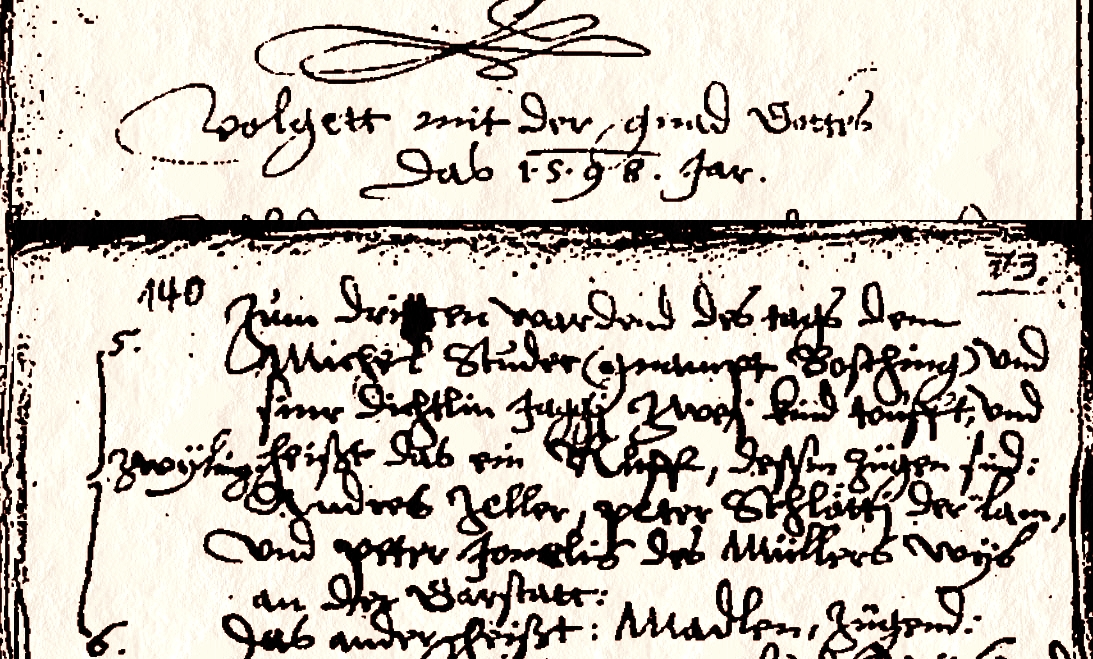 Volgett mit der gnad Gottes
das 1598. Jar.
140 73.
Zum dritten wardend des tags dem
5. Michel Studer (gnampt Bosching) und
siner Dichtlin Jaggi zwej kind toüfft, und
Zwÿling heißt das ein Rüff, dessen zügen sind:
Andres Zeller, peter Schlötti der lam,
und peter des Müllers wÿb
an der Garstatt:
6. Das ander heißt: Madlen, Zügend: